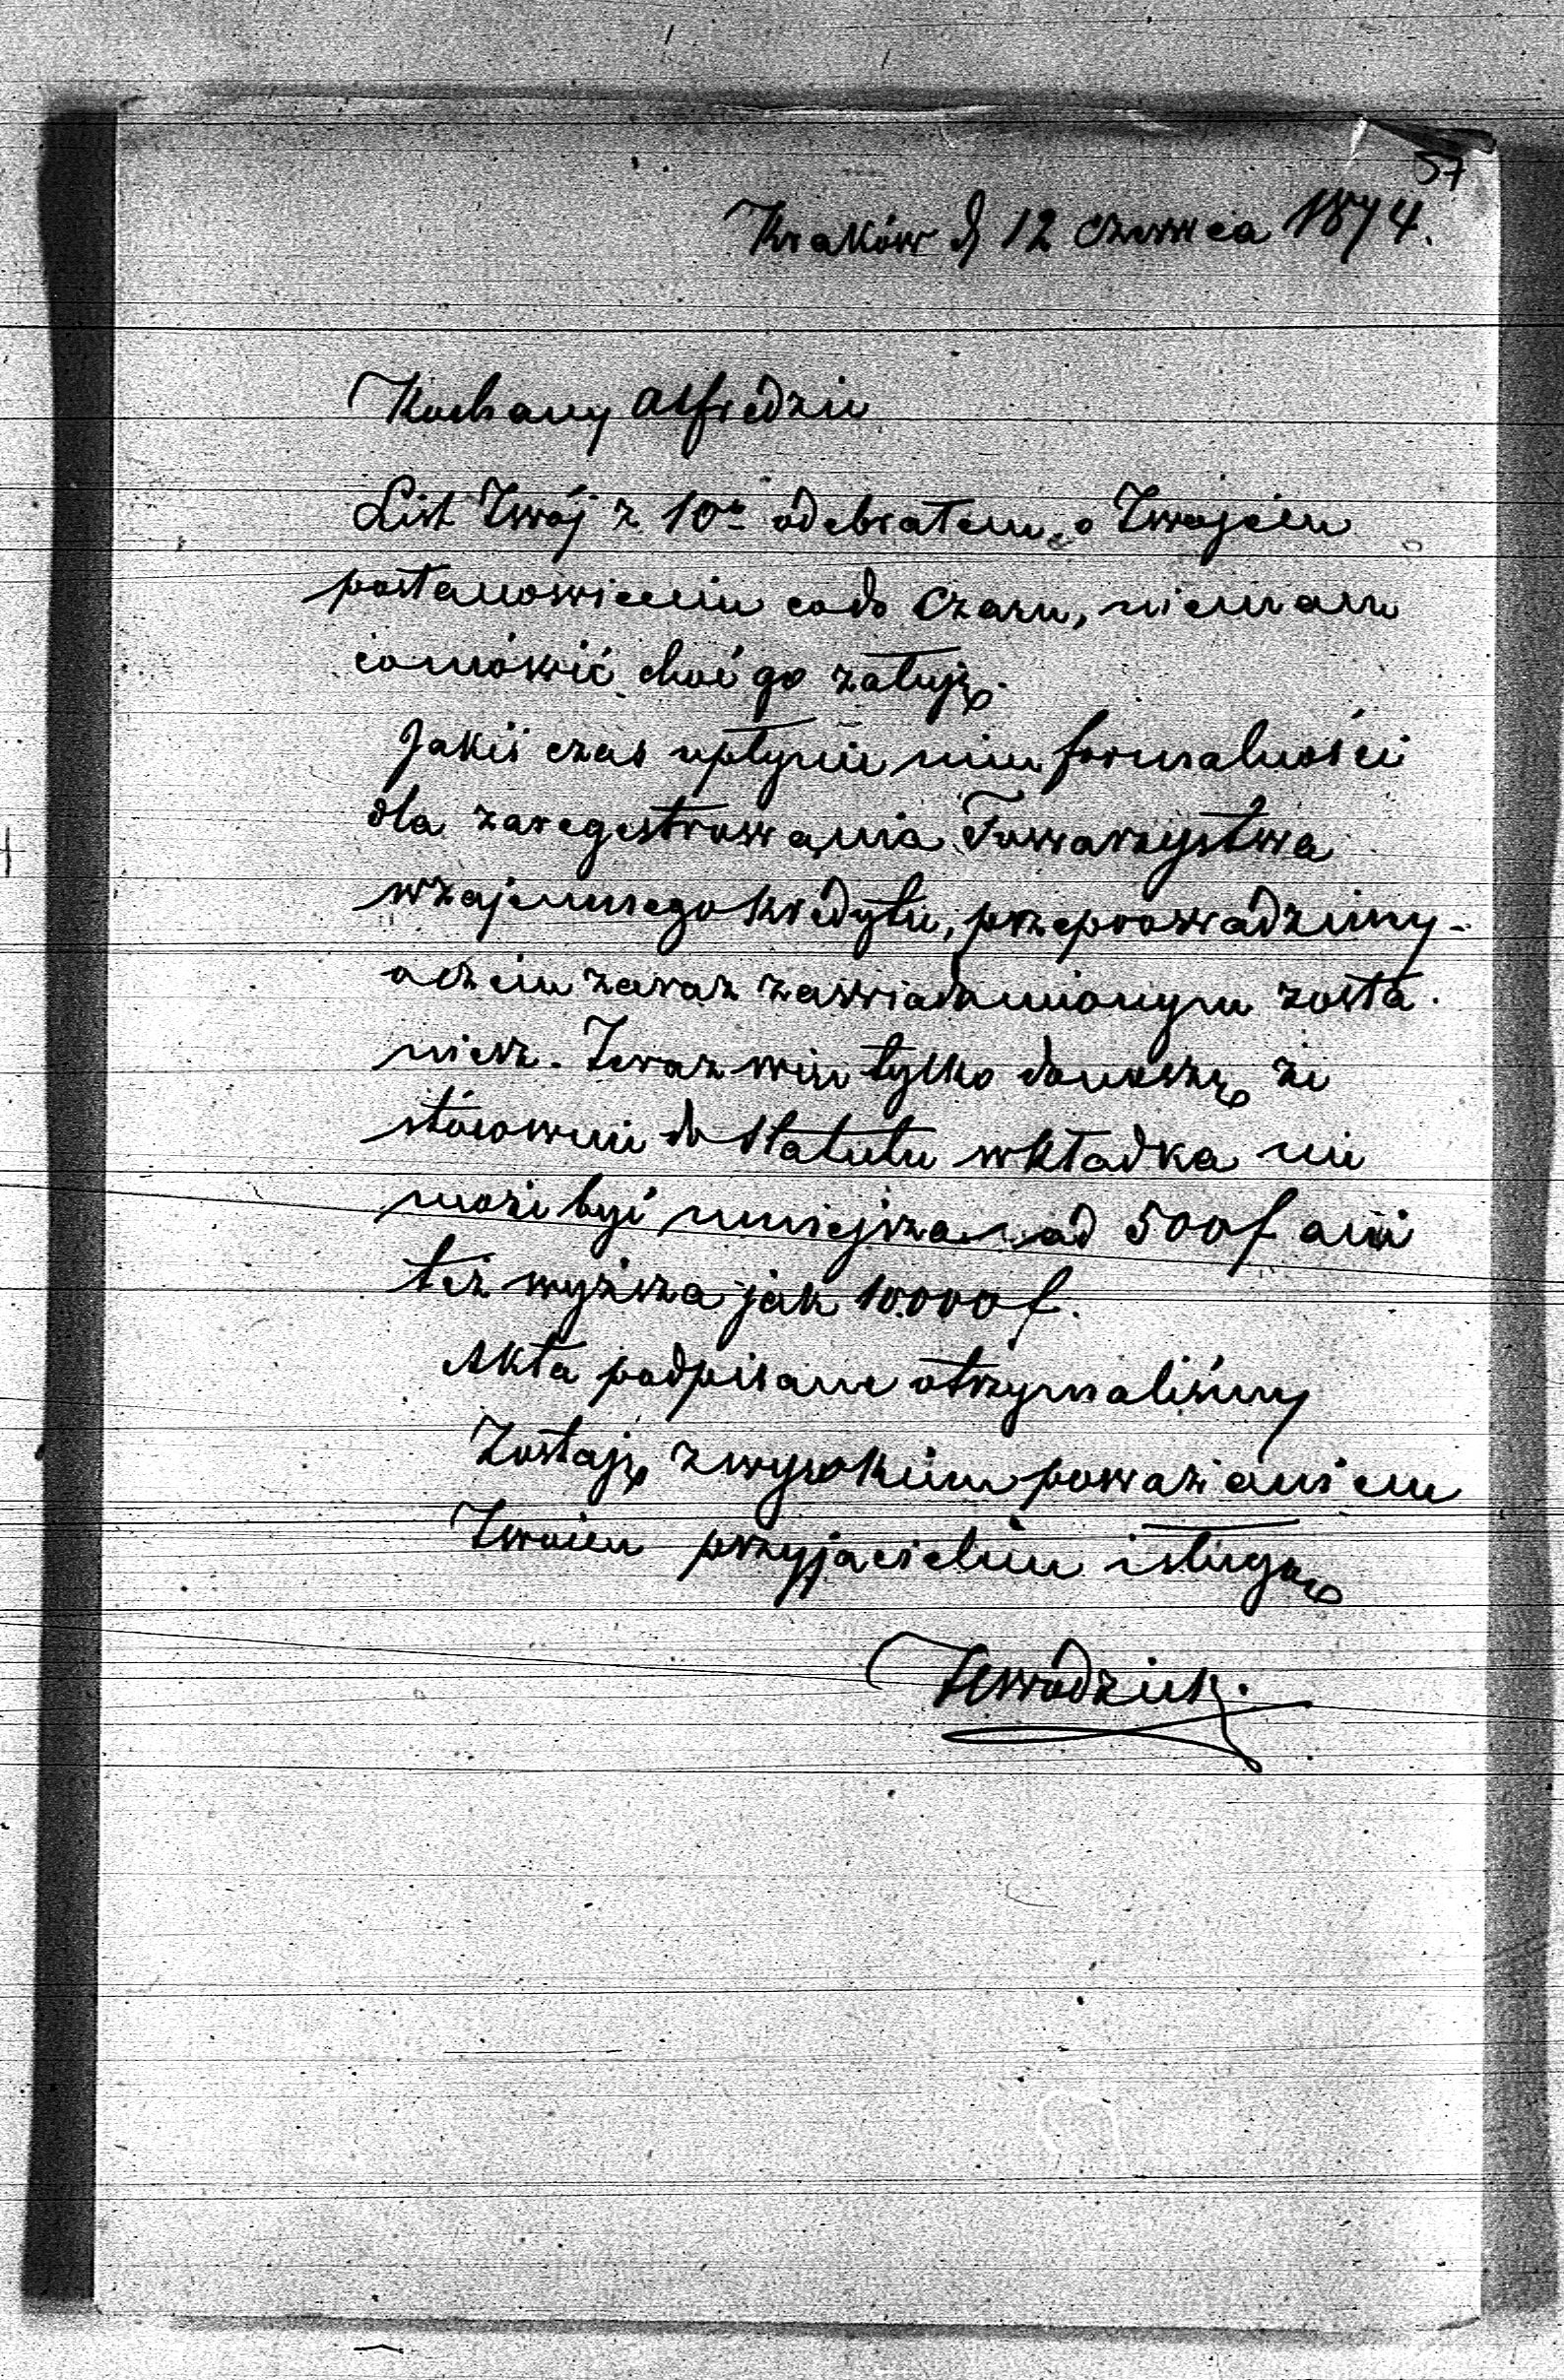 57
Kraków d 12 czerwca 1874.
Kochany Alfredzie
List Twój z 10º odebrałem, o Twojem
postanowieniu codo Czaru, niemam
comówić choć go żałuję.
Jakiś czas upłynie nim formalności
dla zaregestrowania Towarzystwa
wzajemnego kredytu, przeprowadzimy -
oczem zaraz zawiadomionym zosta
niesz. Teraz więc tylko donoszę że
stósownie do Statutu wkładka nie
może być mniejsza nad 500f ani
też wyższa jak 10.000f.
Akta podpisane otrzymaliśmy
Zostaję z wysokiem poważaniem
Twoim przyjacielem i sługą